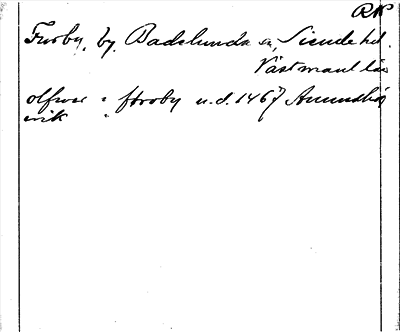 RK
Furby, by, Badelunda sn, Siende hd.
Västmanl län
olfwer i fforoby u.d. 1467
erik "